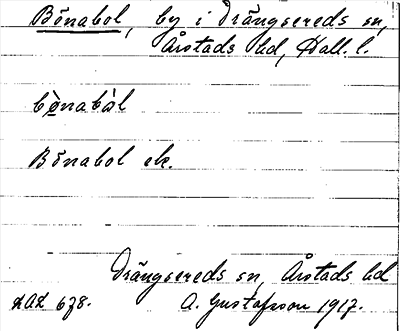 Bönabol, by i Drängsereds sn,
Årstads hd, Hall. l.
bö̀nabòl
Bönabol ek.
Drängsereds sn, Årstads hd
LAL 678. A. Gustafsson 1917.